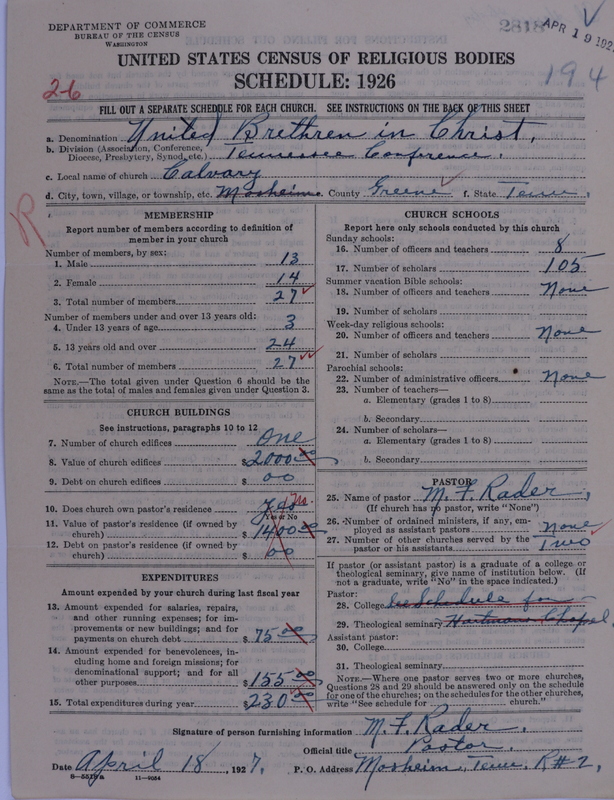 DEPARTMENT OF COMMERCE
BUREAU OF THE CENSUS
WASHINGTON
2818
APR 19 192
194
UNITED STATES CENSUS OF RELIGIOUS BODIES
SCHEDULE: 1926
2-6
FILL OUT A SEPARATE SCHEDULE FOR EACH CHURCH. SEE INSTRUCTIONS ON THE BACK OF THIS SHEET
a. Denomination United Brethren in Christ.
b. Division (Association, Conference, Diocese, Presbytery, Synod, etc.) Tennessee Conference.
c. Local name of church Calvary
d. City, town, village, or township, etc. Mosheim. County Greene f. State Tenn.
R
MEMBERSHIP
Report number of members according to definition of
member in your church
Number of members, by sex:
1. Male 13
2. Female 14
3. Total number of members 27
Number of members under and over 13 years old:
4. Under 13 years of age 3
5. 13 years old and over 24
6. Total number of members 27
NOTE.—The total given under Question 6 should be
same as the total of males and females given under Question 3.
CHURCH BUILDINGS
See instructions, paragraphs 10 to 12
7. Number of church edifices One
8. Value of church edifices $2000.00
9. Debt on church edifices $ 00
10. Does church own pastor's residence Yes No.
Yes or No
11. Value of pastor's residence (if owned by
church) $1400.00
12. Debt on pastor's residence (if owned by
church) $ 00
EXPENDITURES
Amount expended by your church during last fiscal year
13. Amount expended for salaries, repairs,
and other running expenses; for im-
provements or new buildings; and for
payments on church debt $ 75.00
14. Amount expended for benevolences, in-
cluding home and foreign missions; for
denominational support; and for all
other purposes $155.00
15. Total expenditures during year $230.00
CHURCH SCHOOLS
Report here only schools conducted by this church
Sunday schools:
16. Number of officers and teachers 8
17. Number of scholars 105
Summer vacation Bible schools:
18. Number of officers and teachers None
19. Number of scholars
Week-day religious schools:
20. Number of officers and teachers None
21. Number of scholars
Parochial schools:
22. Number of administrative officers None
23. Number of teachers—
a. Elementary (grades 1 to 8)
b. Secondary
24. Number of scholars—
a. Elementary (grades 1 to 8)
b. Secondary
PASTOR
25. Name of pastor M. F. Rader,
(If church has no pastor, write "None")
26. Number of ordained ministers, if any, em-
ployed as assistant pastors None
27. Number of other churches served by the
pastor or his assistants Two
If pastor (or assistant pastor) is a graduate of a college or
theological seminary, give name of institution below. (If
not a graduate, write "No" in the space indicated.)
Pastor:
28. College See Schedule for
29. Theological seminary Hartman Chapel
Assistant pastor:
30. College
31. Theological seminary
NOTE.—Where one pastor serves two or more churches,
Questions 28 and 29 should be answered only on the schedule
for one of the churches; on the schedules for the other churches,
write "See schedule for church."
Signature of person furnishing information M. F. Rader,
Official title Pastor.
Date April 18, 1927. P. O. Address Mosheim, Tenn. R#2,
8—5519a 11—9084